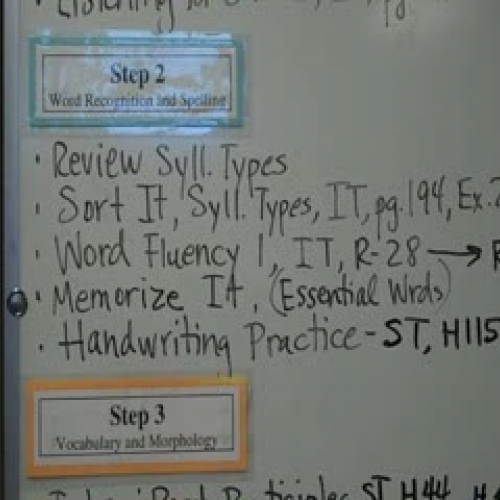 • Listening for
Step 2
Word Recognition and Spelling
• Review Syll. Types
• Sort It, Syll. Types, IT, pg. 194, Ex.
• Word Fluency 1, IT, R-28 →
• Memorize It, (Essential Wrds)
• Handwriting Practice - ST, H115
Step 3
Vocabulary and Morphology
ST, H44,